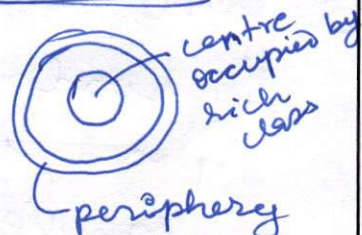 centre
occupied by
rich
class
periphery